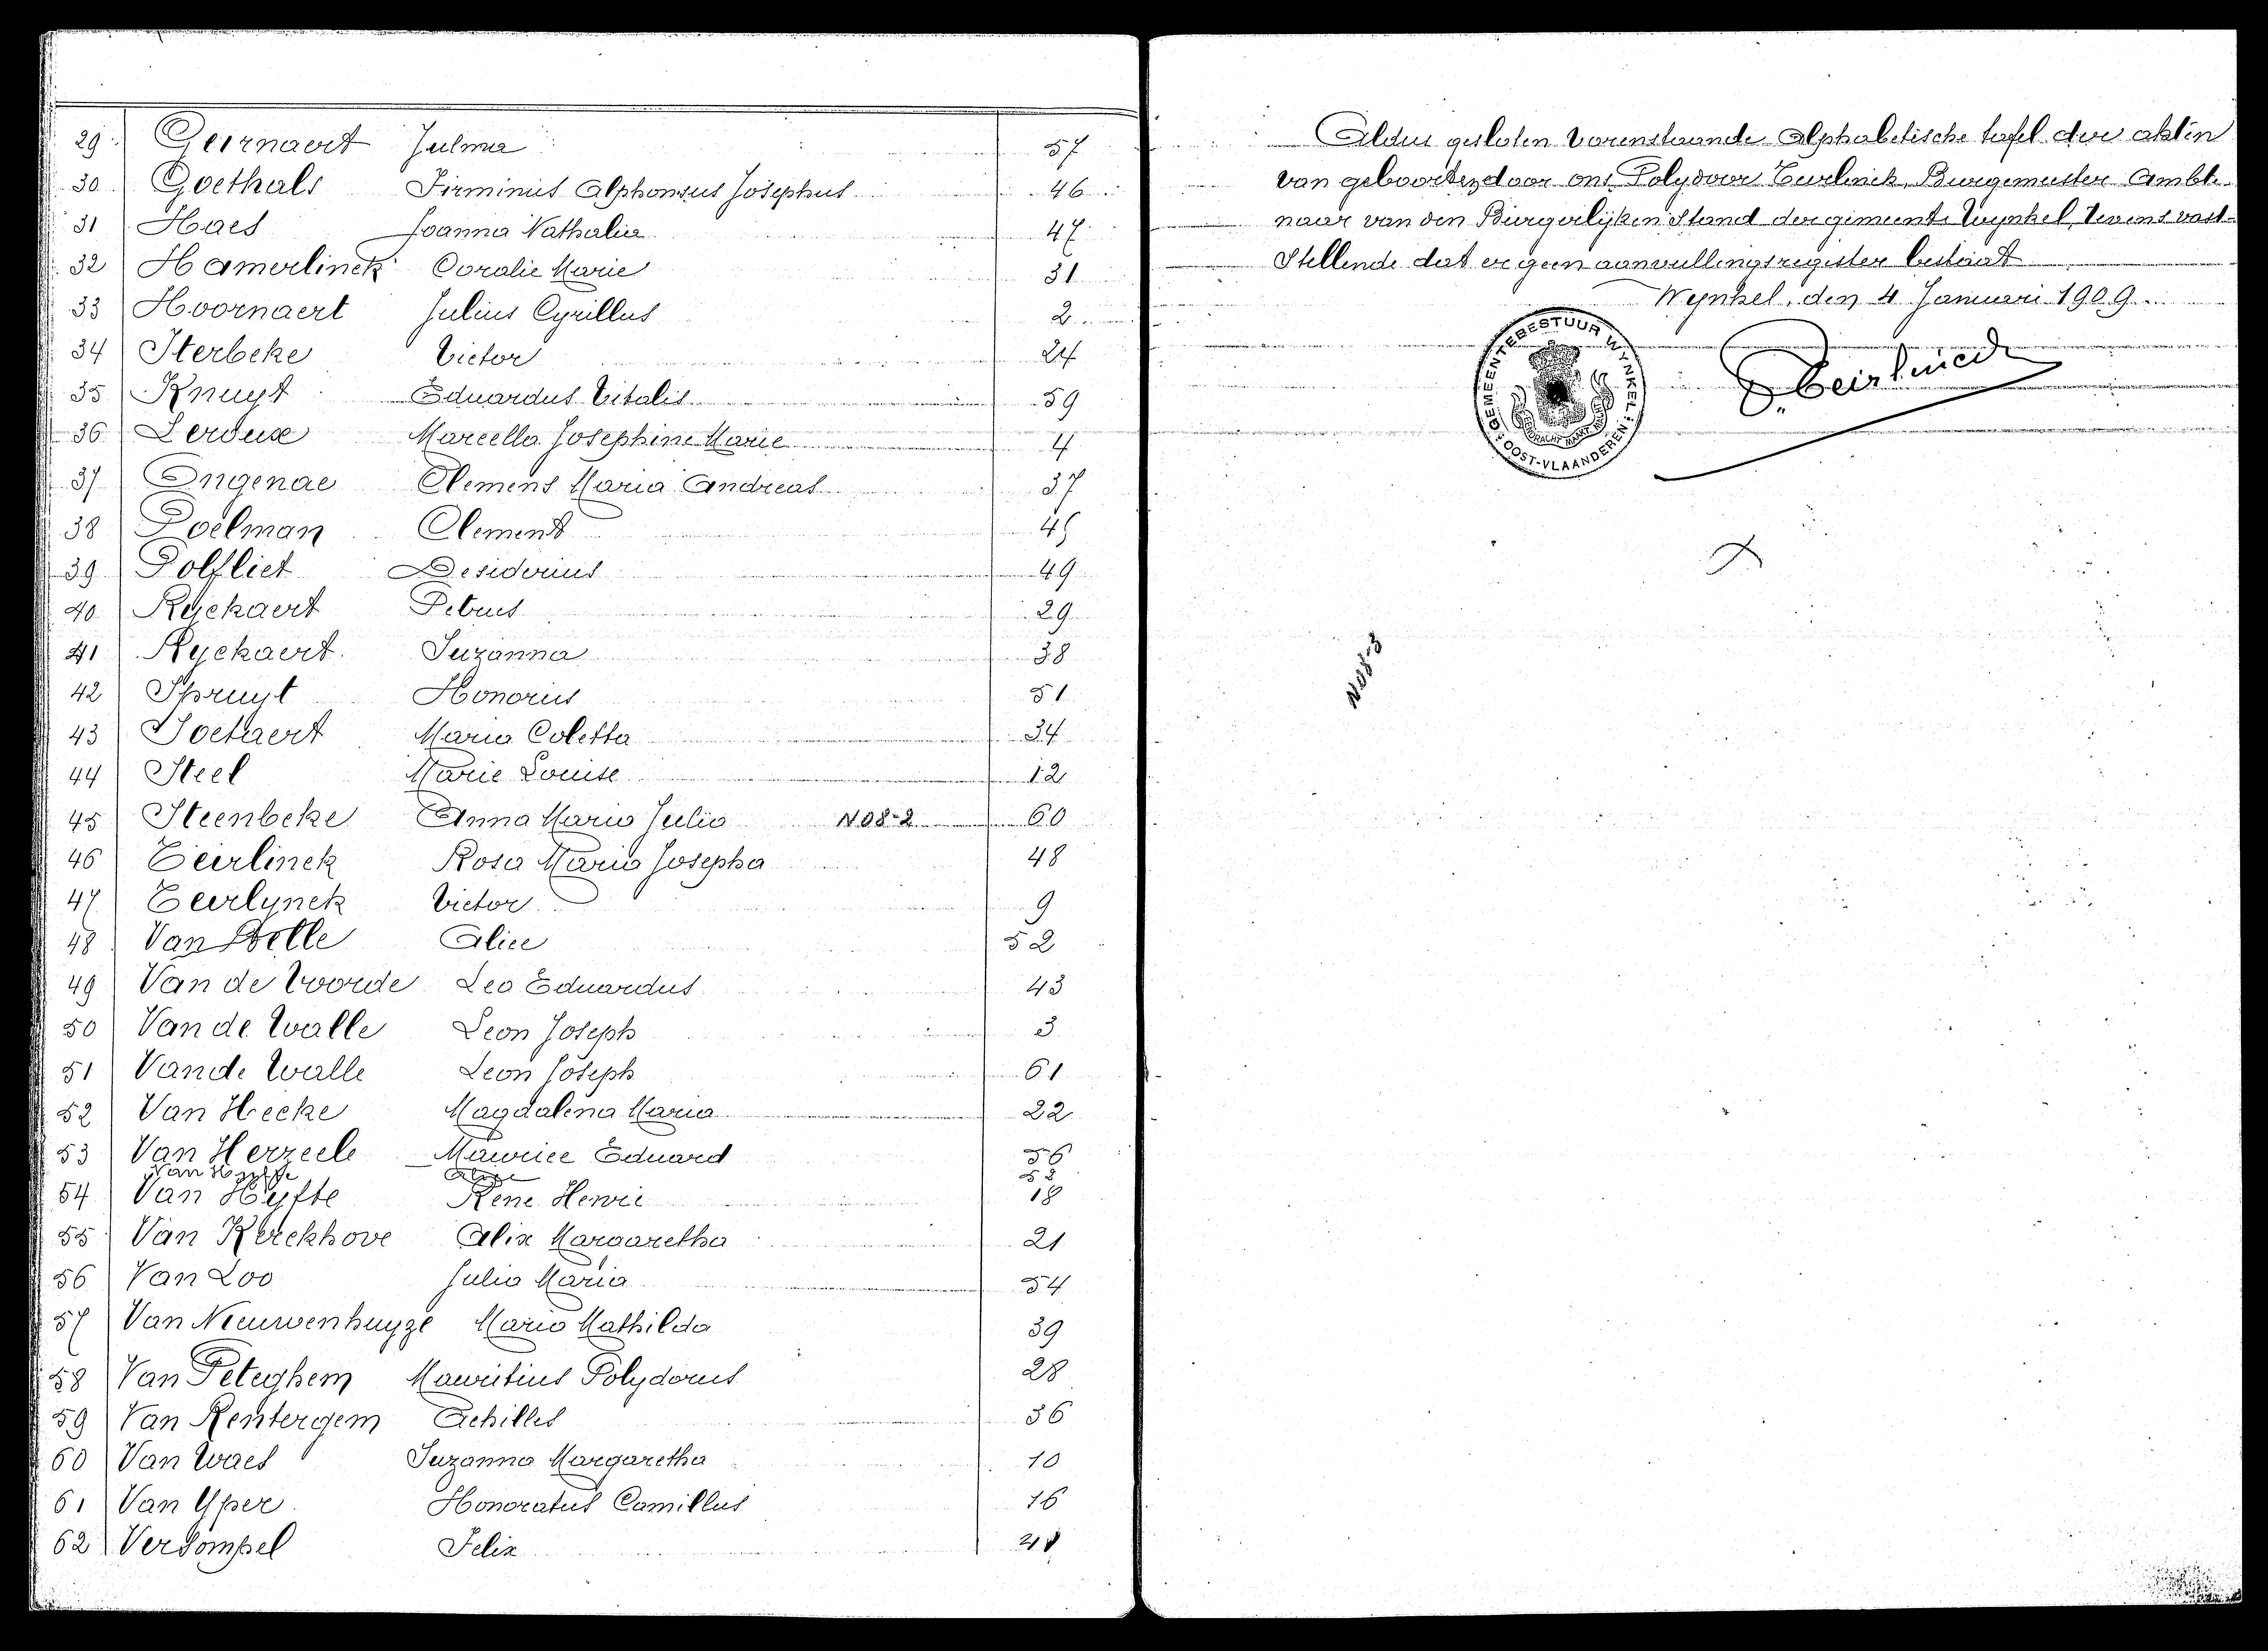 29 Geirnaert Julma 57
30 Goethals Firminus Alphonsus Josephus 46
31 Haes Joanna Nathalia 47
32 Hamerlinck Coralie Marie 31
33 Hoornaert Julius Cyrillus 2
34 Iterbeke Victor 24
35 Knuyt Eduardus Vitalis 59
36 Leroux Marcella Josephine Marie 4
37 Ongenae Clemens Maria Andreas 37
38 Poelman Clement 45
39 Polfliet Desiderius 49
40 Ryckaert Petrus 29
41 Ryckaert Suzanna 38
42 Spruyt Honorius 51
43 Soetaert Maria Coletta 34
44 Steel Marie Louise 12
45 Steenbeke Anna Maria Julia N08-2 60
46 Teirlinck Rosa Maria Josepha 48
47 Teirlynck Victor 9
48 Van Belle Alice 52
49 Van de Voorde Leo Eduardus 43
50 Van de Walle Leon Joseph 3
51 Van de Walle Leon Joseph 61
52 Van Hecke Magdalena Maria 22
53 Van Herzeele Maurice Eduard 56
Van Hyfte
54 Van Hyfte René Henri 18
55 Van Kerckhove Alix Margaretha 21
56 Van Loo Julia Maria 54
57 Van Nieuwenhuyze Maria Mathilda 39
58 Van Peteghem Mauritius Polydorus 28
59 Van Rentergem Achilles 36
60 Van Waes Suzanna Margaretha 10
61 Van Yper Honoratus Camillus 16
62 Verdompel Felix
Aldus gesloten vorenstaande Alphabetische tafel der akten
van geboorten door ons Polydoor Teirlinck, Burgemeester Ambte-
naar van den Burgerlijken Stand der gemeente Wynkel, tevens vast-
stellende dat er geen aanvullingsregister bestaat
Wynkel, den 4 Januari 1909.
GEMEENTEBESTUUR WYNKEL
OOST-VLAANDEREN
EENDRACHT MAAKT MACHT
P. Teirlinck
N08-3